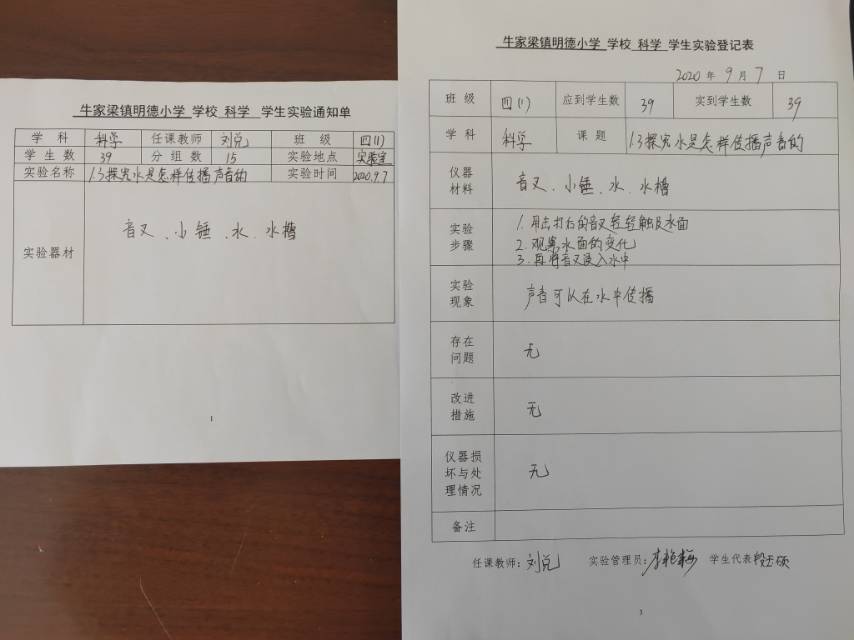 牛家梁镇明德小学 学校 科学 学生实验通知单
学 科 科学 任课教师 刘兑 班 级 四(1)
学 生 数 39 分 组 数 15 实验地点 实验室
实验名称 1.3探究水是怎样传播声音的 实验时间 2020.9.7
实验器材 音叉、小锤、水、水槽
1
牛家梁镇明德小学 学校 科学 学生实验登记表
2020 年 9 月 7 日
班 级 四(1) 应到学生数 39 实到学生数 39
学 科 科学 课 题 1.3探究水是怎样传播声音的
仪器
材料
音叉、小锤、水、水槽
实验
步骤
1. 用击打后的音叉轻轻触及水面
2. 观察水面的变化
3. 再将音叉浸入水中
实验
现象
声音可以在水中传播
存在
问题
无
改进
措施
无
仪器损
坏与处
理情况
无
备注
任课教师：刘兑 实验管理员：李艳梅 学生代表
3